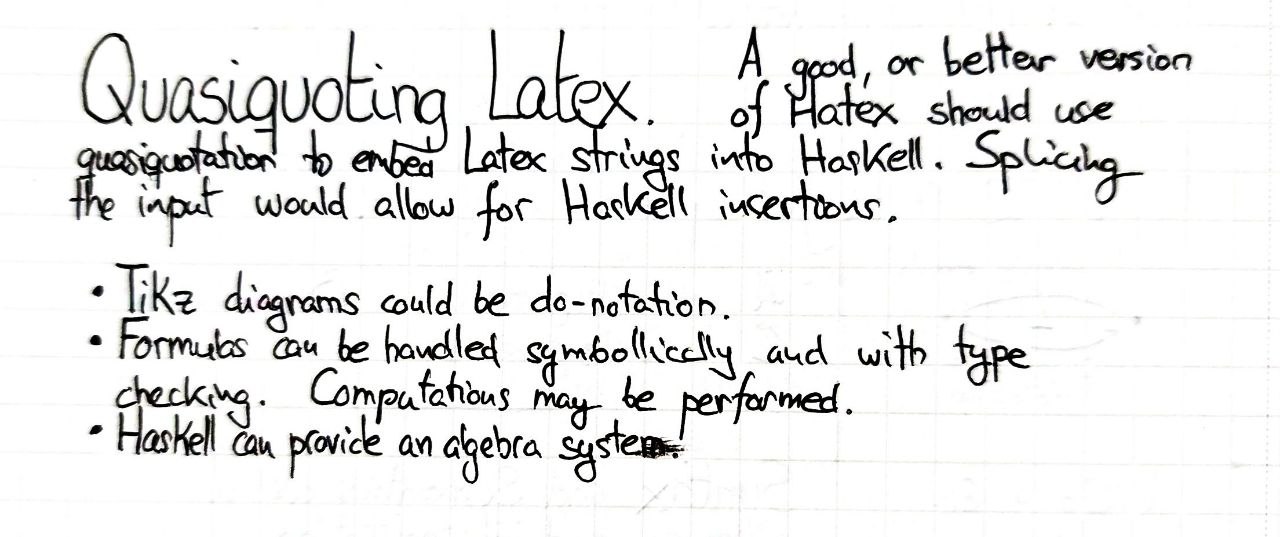 Quasiquoting Latex. A good, or better version
of Hatex should use
quasiquotation to embed Latex strings into Haskell. Splicing
the input would allow for Haskell insertions.
• TikZ diagrams could be do-notation.
• Formulas can be handled symbollically and with type
checking. Computations may be performed.
• Haskell can provide an algebra system.